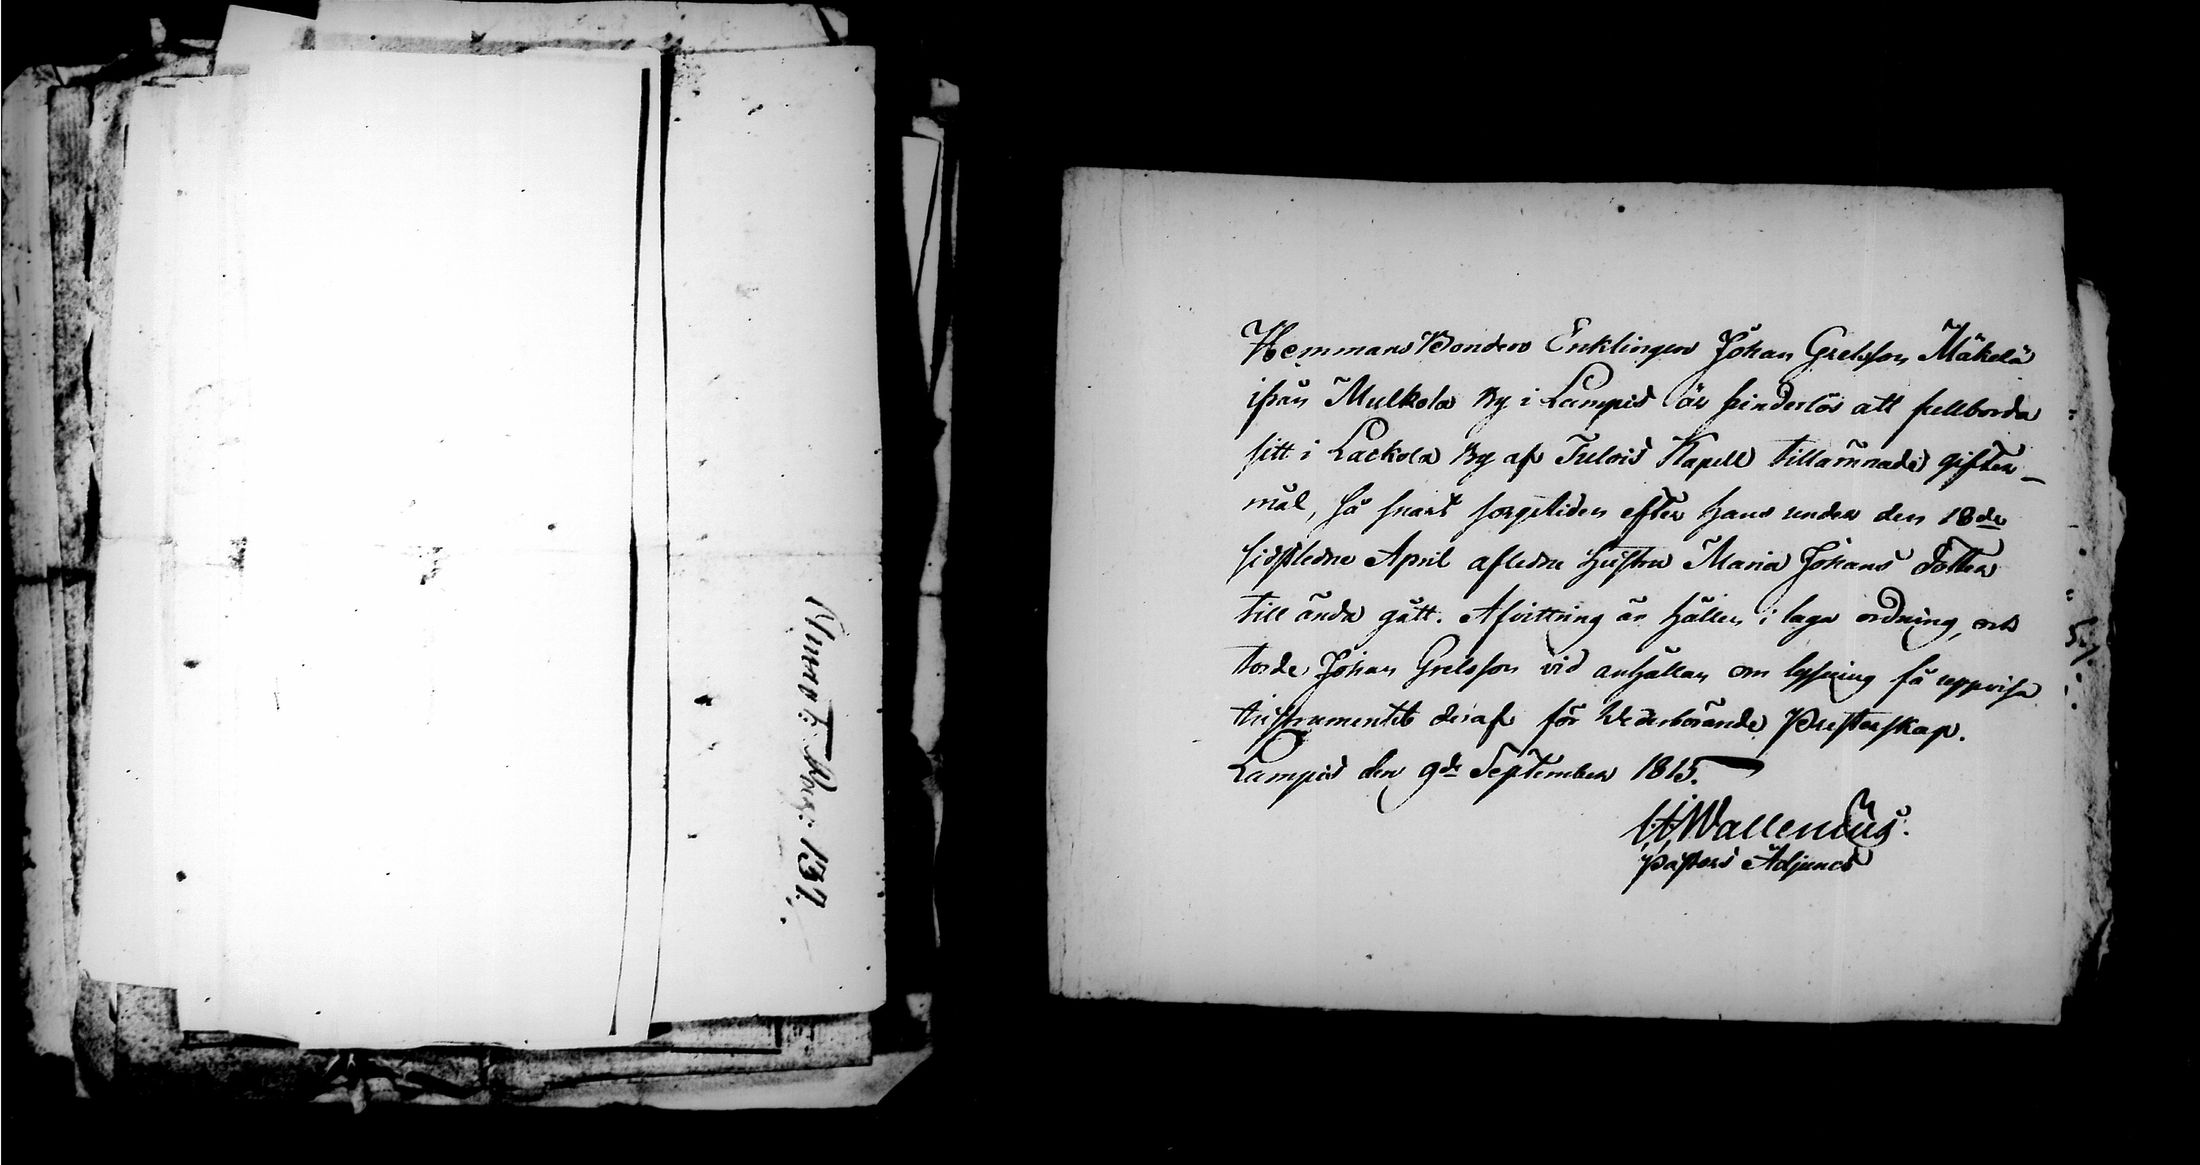 HemmansBonden Enklingen Johan Grelsson Mäkelä
ifrån Mulkola By i Lampis är hinderlös att fullborda
sitt i Lackola By af Tulois Kapell tillämnade gifter-
mål, så snart sorgetiden efter hans under den 18de
sidstledne April afledne hustru Maria Johans Dotter
till ända gått. Afvittring är hållen i laga ordning, och
torde Johan Grelsson vid anhållan om lysning få uppvisa
Instrumentet deraf för Vederbörande Presterskap.
Lampis den 9de September 1815.
Wallenius.
Pastors Adjunct
137.